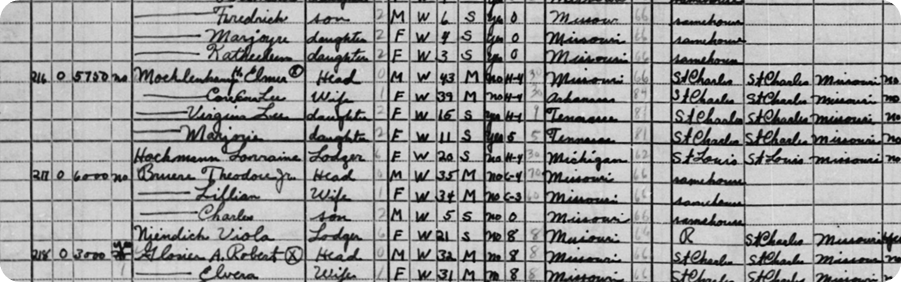 Fredrick son 2 M W 6 S yes 0 Missouri 66 samehouse
Marjorye daughter 2 F W 4 S yes 0 Missouri 66 samehouse
Kathleen daughter 2 F W 3 S yes 0 Missouri 66 samehouse
216 0 5750 no Elmer Head 0 M W 43 M no H-4 30 Missouri 66 St Charles St Charles Missouri no
Wife 1 F W 39 M no H-4 30 Arkansas 84 St Charles St Charles Missouri no
Virginia Lee daughter 2 F W 15 S yes H-1 9 Tennessee 81 St Charles St Charles Missouri no
Marjorie daughter 2 F W 11 S yes 5 5 Tennessee 81 St Charles St Charles Missouri no
Hackmann Lorraine Lodger 6 F W 20 S no H-4 30 Michigan 62 St Louis St Louis Missouri no
217 0 6000 no Bruere Theodore Jr. Head 0 M W 35 M no C-4 70 Missouri 66 samehouse
Lillian Wife 1 F W 34 M no C-3 60 Missouri 66 samehouse
Charles son 2 M W 5 S no 0 Missouri 66 samehouse
Niendich Viola Lodger 6 F W 21 S no 8 8 Missouri 66 R St Charles Missouri yes
218 0 3000 Glosier A. Robert X Head 0 M W 32 M no 8 8 Missouri 66 St Charles St Charles Missouri no
Elvera Wife 1 F W 31 M no 8 8 Missouri 66 St Charles St Charles Missouri no